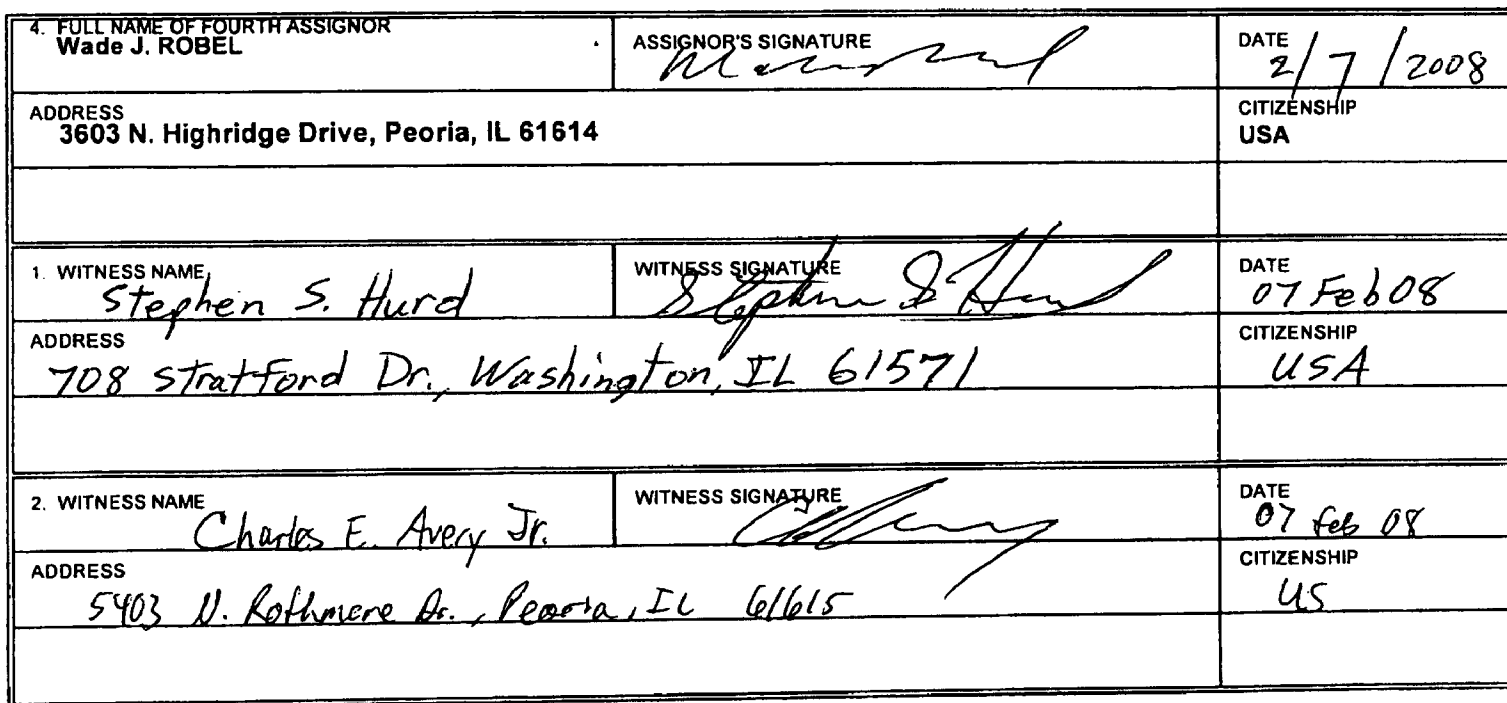 4. FULL NAME OF FOURTH ASSIGNOR
Wade J. ROBEL
ASSIGNOR'S SIGNATURE
DATE
2/7/2008
ADDRESS
3603 N. Highridge Drive, Peoria, IL 61614
CITIZENSHIP
USA
1. WITNESS NAME
Stephen S. Hurd
WITNESS SIGNATURE
Stephen S Hurd
DATE
07 Feb 08
ADDRESS
708 Stratford Dr., Washington, IL 61571
CITIZENSHIP
USA
2. WITNESS NAME
Charles E. Avery Jr.
WITNESS SIGNATURE
DATE
07 Feb 08
ADDRESS
5403 N. Rothmere Dr., Peoria, IL 61615
CITIZENSHIP
US